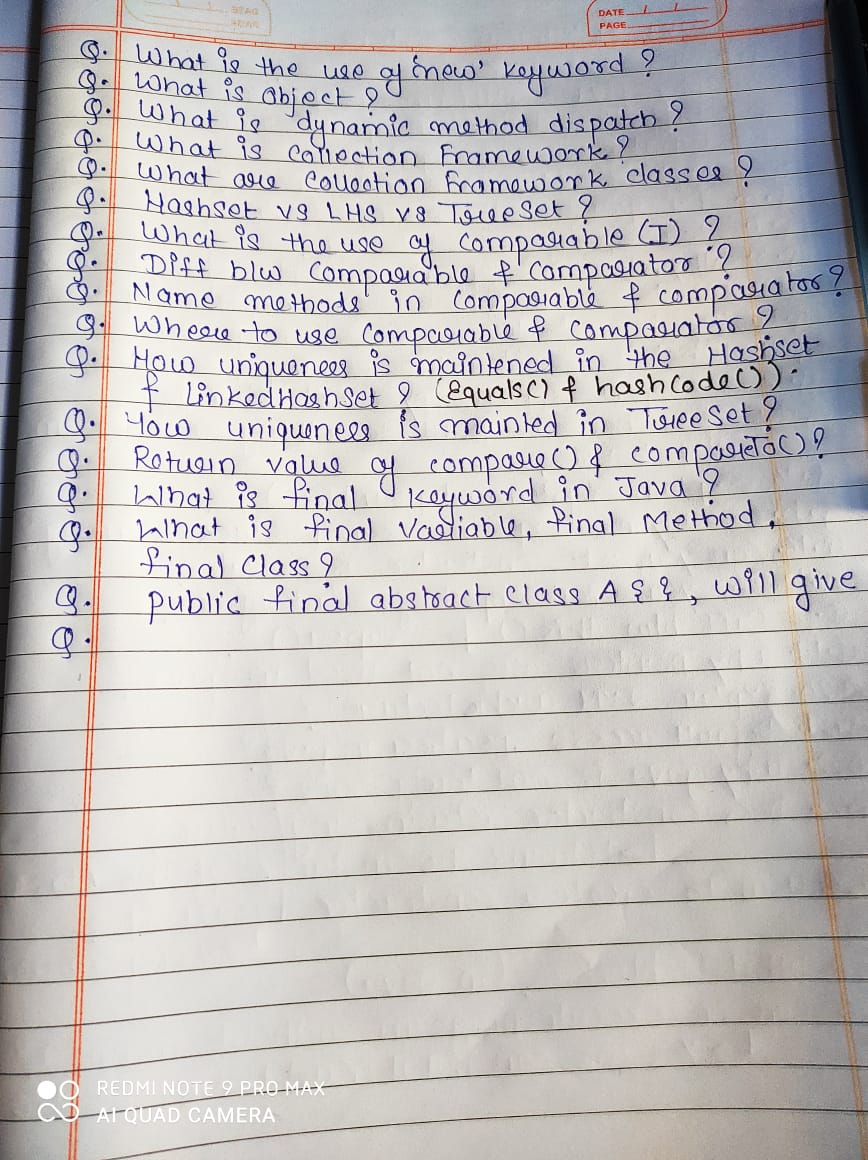 DATE
PAGE
Q. What is the use of 'new' keyword ?
Q. What is object ?
Q. What is dynamic method dispatch ?
Q. What is collection Framework ?
Q. What are Collection Framework classes ?
Q. Hashset vs LHS vs TreeSet ?
Q. What is the use of Comparable (I) ?
Q. Diff b/w Comparable & Comparator ?
Q. Name methods in Comparable & comparator ?
Q. Where to use Comparable & Comparator ?
Q. How uniqueness is maintened in the Hashset
& LinkedHashSet ? (equals() & hashcode()).
Q. How uniqueness is mainted in TreeSet ?
Q. Return value of compare() & compareTo() ?
Q. What is final keyword in Java ?
Q. What is final Variable, final Method,
final Class ?
Q. public final abstract class A { }, will give
Q.
REDMI NOTE 9 PRO MAX
AI QUAD CAMERA